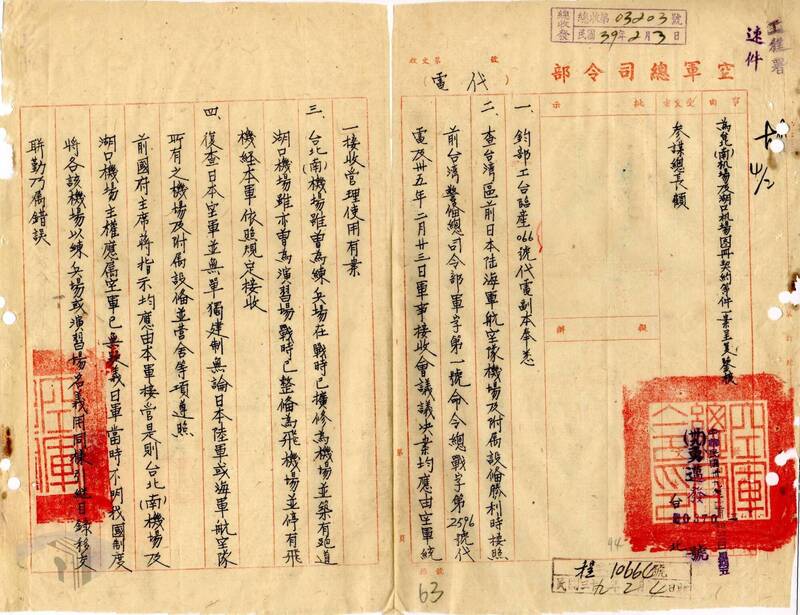 工程署
速件
總收發
總收第03203號
民國39年2月3日
空軍總司令部
（代電）
事由
批示
擬辦
為台北(南)機場及湖口機場圖冊契約等件一案呈复鑒核
參謀總長顧
一、鈞部工台臨產066號代電副本奉悉
二、查台灣區前日本陸海軍航空隊機場及附屬設備勝利時按照
前台灣警備總司令部軍字第一號命令總戰字第2596號代
電及卅五年二月廿三日軍事接收會議議決案均應由空軍統
一接收管理使用有案
三、台北(南)機場雖曾為練兵場在戰時已擴修為機場並築有跑道
湖口機場雖亦曾為演習場戰時已整備為飛機場並停有飛
機經本軍依照規定接收
四、復查日本空軍並無單獨建制無論日本陸軍或海軍航空隊
所有之機場及附屬設備並營舍等項遵照
前國府主席蔣指示均應由本軍接管是則台北(南)機場及
湖口機場主權應屬空軍已無疑義日軍當時不明我國制度
將各該機場以練兵場或演習場名義用同樣列繕目錄移交
聯勤乃屬錯誤
台
北
號
程10666號
63
94